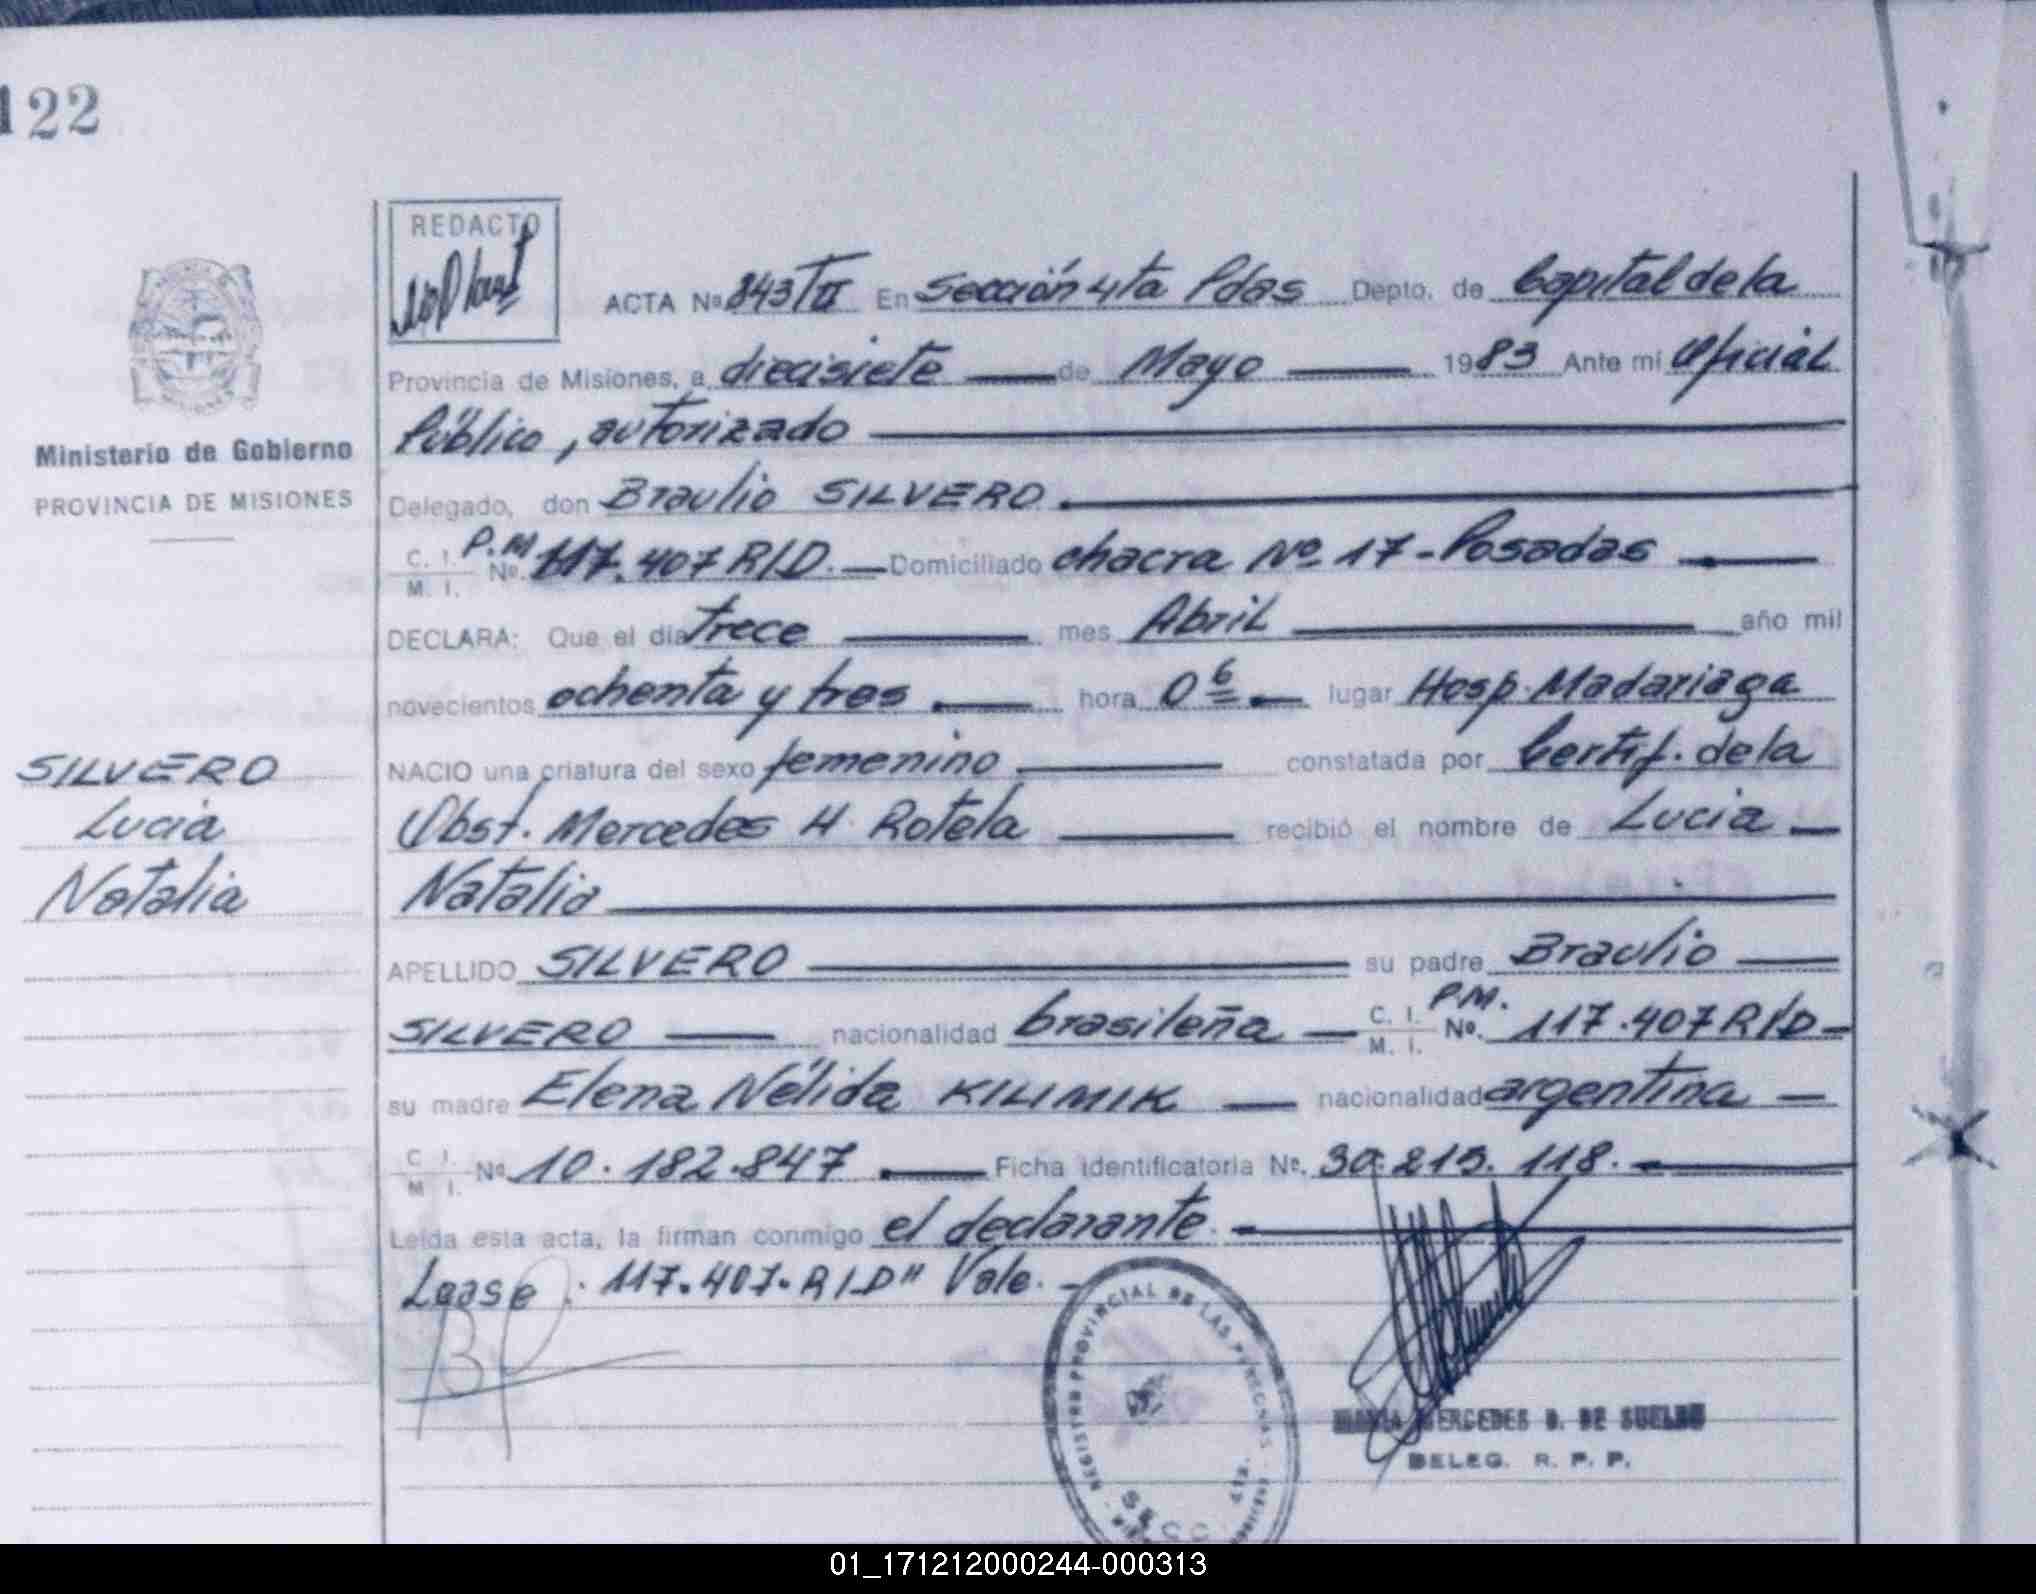 122
REDACTO
ACTA Nº 843 T II En Sección 4ta Pdas Depto. de Capital de la
Provincia de Misiones, a diecisiete de Mayo 1983 Ante mí Oficial
Público, autorizado
Delegado, don Braulio SILVERO.
C. I. M. I. P.M Nº. 117.407 R/D. Domiciliado chacra Nº 17 - Posadas
DECLARA: Que el día trece mes Abril año mil
novecientos ochenta y tres hora 0 6 lugar Hosp. Madariaga
NACIO una criatura del sexo femenino constatada por Certif. de la
Obst. Mercedes H. Rotela recibió el nombre de Lucia
Natalia
APELLIDO SILVERO su padre Braulio
SILVERO nacionalidad brasileña C. I. M. I. P.M. Nº. 117.407 R/D
su madre Elena Nélida KILIMIK nacionalidad argentina
C I. M I. Nº 10.182.847 Ficha Identificatoria Nº. 30.215.118.
Leída esta acta, la firman conmigo el declarante.
Lease: 117.407. R/D" Vale.
Ministerio de Gobierno
PROVINCIA DE MISIONES
SILVERO
Lucia
Natalia
REGISTRO PROVINCIAL DE LAS PERSONAS
SECC 4ta.
MARIA MERCEDES D. DE SUELDO
DELEG. R. P. P.
01_171212000244-000313